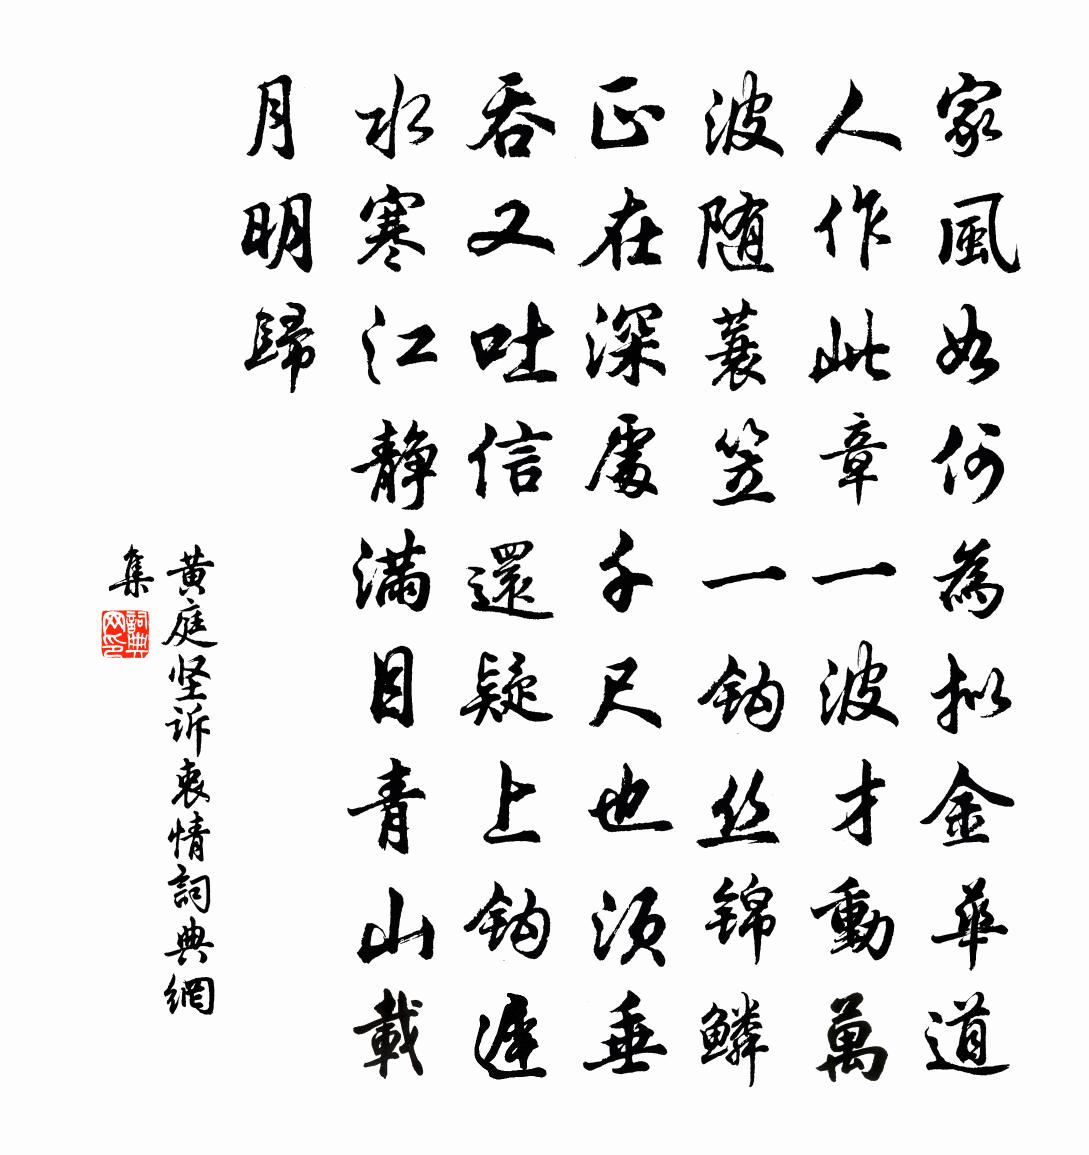 家風如何為拟金華道
人作此章一波才動萬
波随蓑笠一鈎丝锦鳞
正在深處千尺也须垂
吞又吐信還疑上鈎遲
水寒江静满目青山載
月明歸
黄庭坚诉衷情詞典網
集
詞典网印